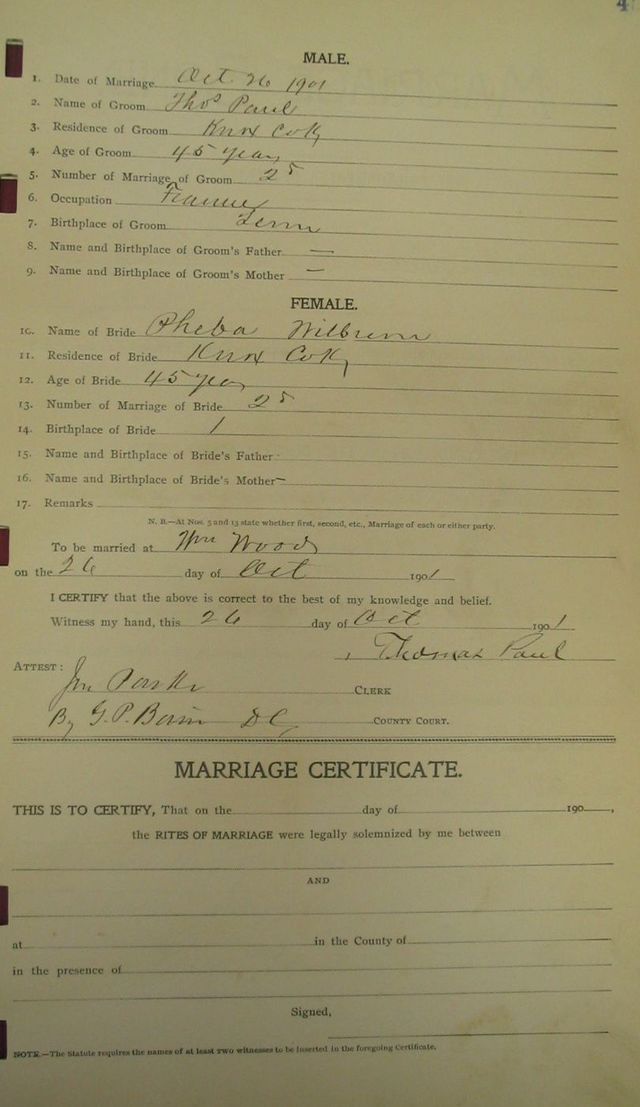 4
MALE.
1. Date of Marriage Oct 26 1901
2. Name of Groom Thos Paul
3. Residence of Groom Knox Co Ky
4. Age of Groom 45 years
5. Number of Marriage of Groom 2
6. Occupation
7. Birthplace of Groom Tenn
8. Name and Birthplace of Groom's Father —
9. Name and Birthplace of Groom's Mother —
FEMALE.
10. Name of Bride Pheba
11. Residence of Bride Knox Co Ky
12. Age of Bride 45 years
13. Number of Marriage of Bride 2
14. Birthplace of Bride
15. Name and Birthplace of Bride's Father
16. Name and Birthplace of Bride's Mother —
17. Remarks
N. B.—At Nos. 5 and 13 state whether first, second, etc., Marriage of each or either party.
To be married at Wm Woods
on the 26 day of Oct 1901
I CERTIFY that the above is correct to the best of my knowledge and belief.
Witness my hand, this 26 day of Oct 1901
Thomas Paul
ATTEST:
Jno Parker CLERK
By G. P. D C, COUNTY COURT.
MARRIAGE CERTIFICATE.
THIS IS TO CERTIFY, That on the day of 190 ,
the RITES OF MARRIAGE were legally solemnized by me between
AND
at in the County of
in the presence of
Signed,
NOTE.—The Statute requires the names of at least two witnesses to be inserted in the foregoing Certificate.